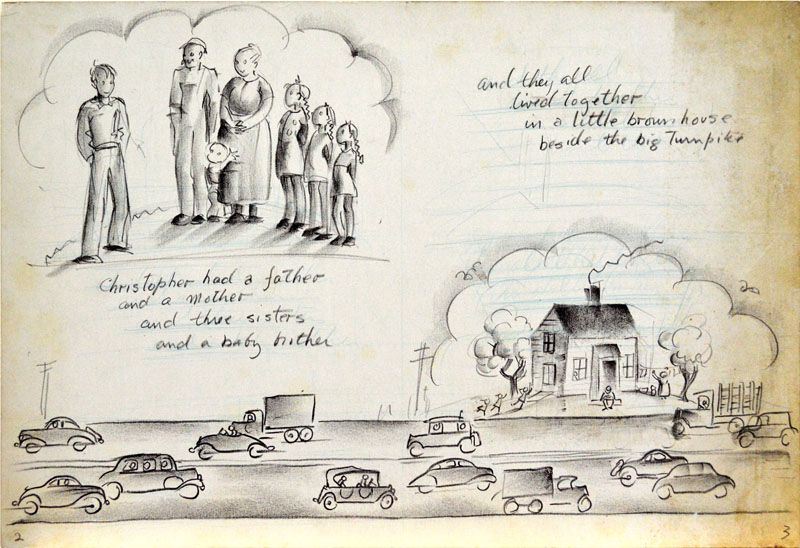 Christopher had a father
and a Mother
and three sisters
and a baby brother
and they all
lived together
in a little brown house
beside the big Turnpike
2
3